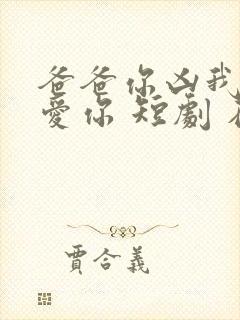 爸爸你凶我
愛你 短劇
賈合義